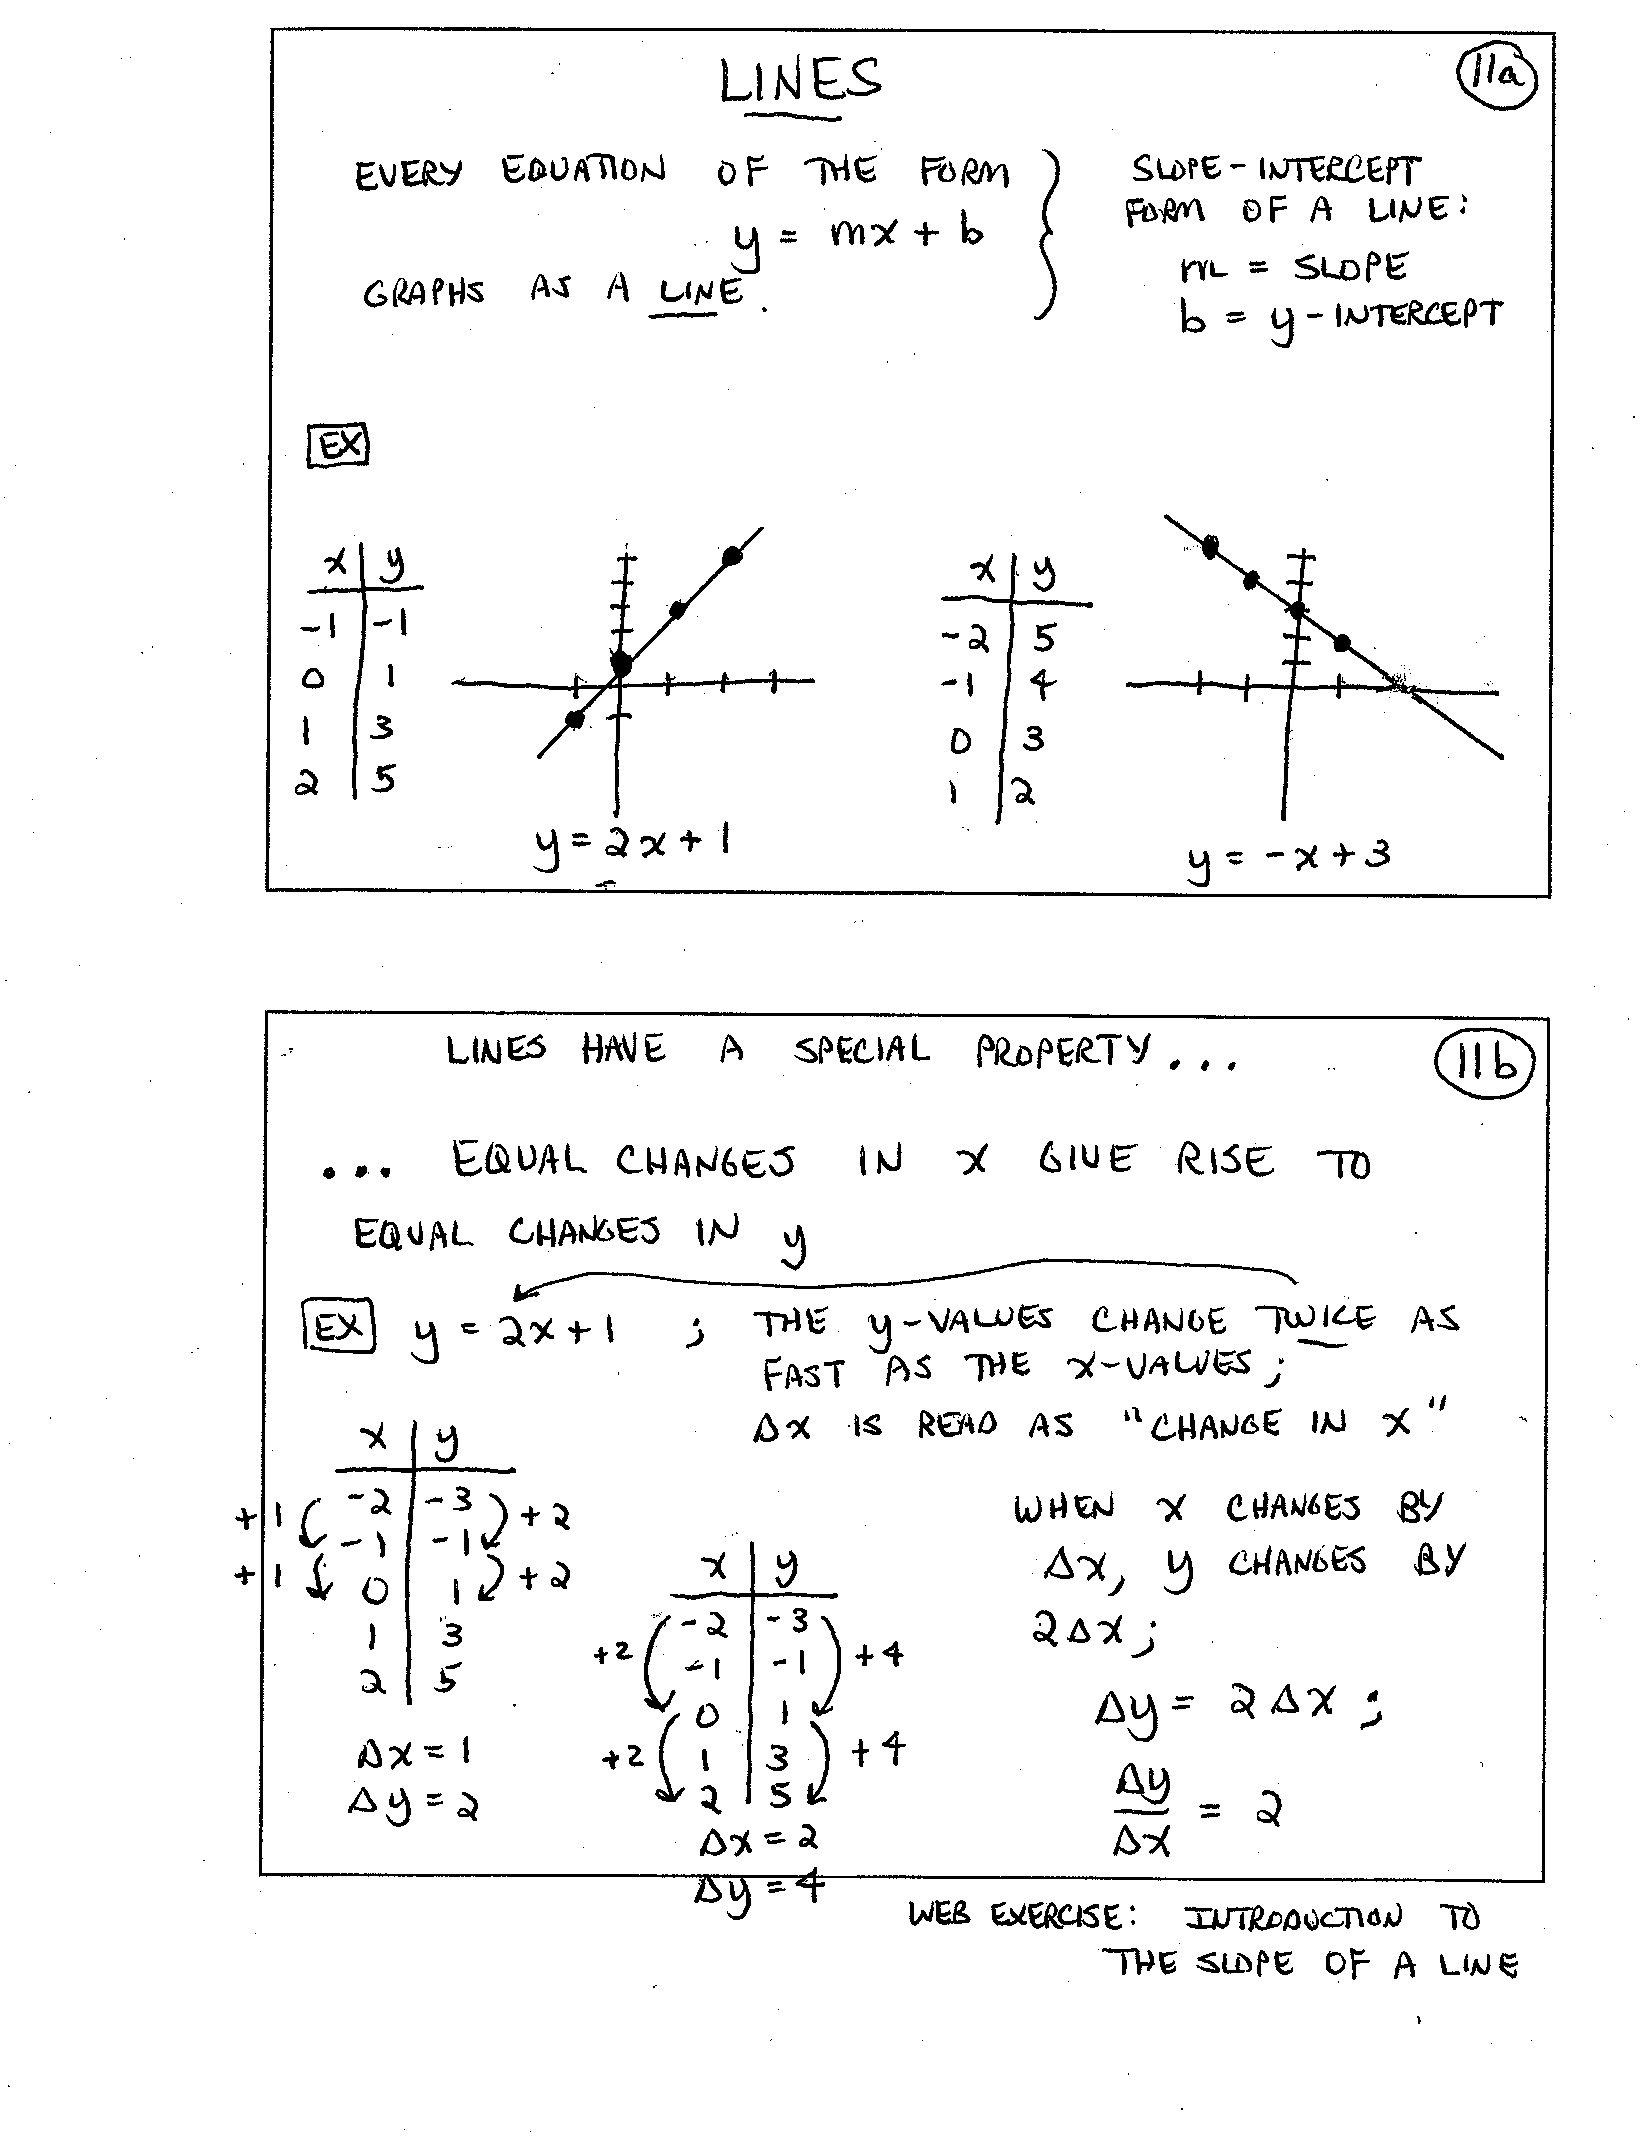 LINES
11a
EVERY EQUATION OF THE FORM
y = mx + b
GRAPHS AS A LINE.
SLOPE-INTERCEPT
FORM OF A LINE:
m = SLOPE
b = y-INTERCEPT
EX
x y
-1 -1
0 1
1 3
2 5
y = 2x + 1
x y
-2 5
-1 4
0 3
1 2
y = -x + 3
LINES HAVE A SPECIAL PROPERTY...
11b
... EQUAL CHANGES IN x GIVE RISE TO
EQUAL CHANGES IN y
EX y = 2x+1 ; THE y-VALUES CHANGE TWICE AS
FAST AS THE x-VALUES;
Δx IS READ AS "CHANGE IN x"
x y
-2 -3
+1 +2
-1 -1
+1 +2
0 1
1 3
2 5
Δx = 1
Δy = 2
x y
-2 -3
+2 -1 -1 +4
0 1
+2 1 3 +4
2 5
Δx = 2
Δy = 4
WHEN x CHANGES BY
Δx, y CHANGES BY
2Δx;
Δy = 2Δx;
Δy
Δx = 2
WEB EXERCISE: INTRODUCTION TO
THE SLOPE OF A LINE